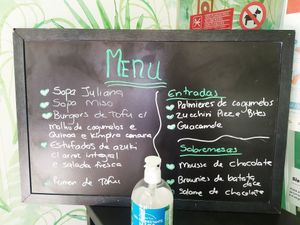 MENU
Sopa Juliana
Sopa Miso
Burgers de Tofu c/
molho de cogumelos e
Quinoa e Kimpira cenoura
Estufados de azuki
c/ arroz integral
e salada fresca
Ramen de Tofu
Entradas
Palmieres de cogumelos
Zucchini Pizza Bites
Guacamole
Sobremesas
Mousse de chocolate
Brownies de batata
doce
Salame de chocolate